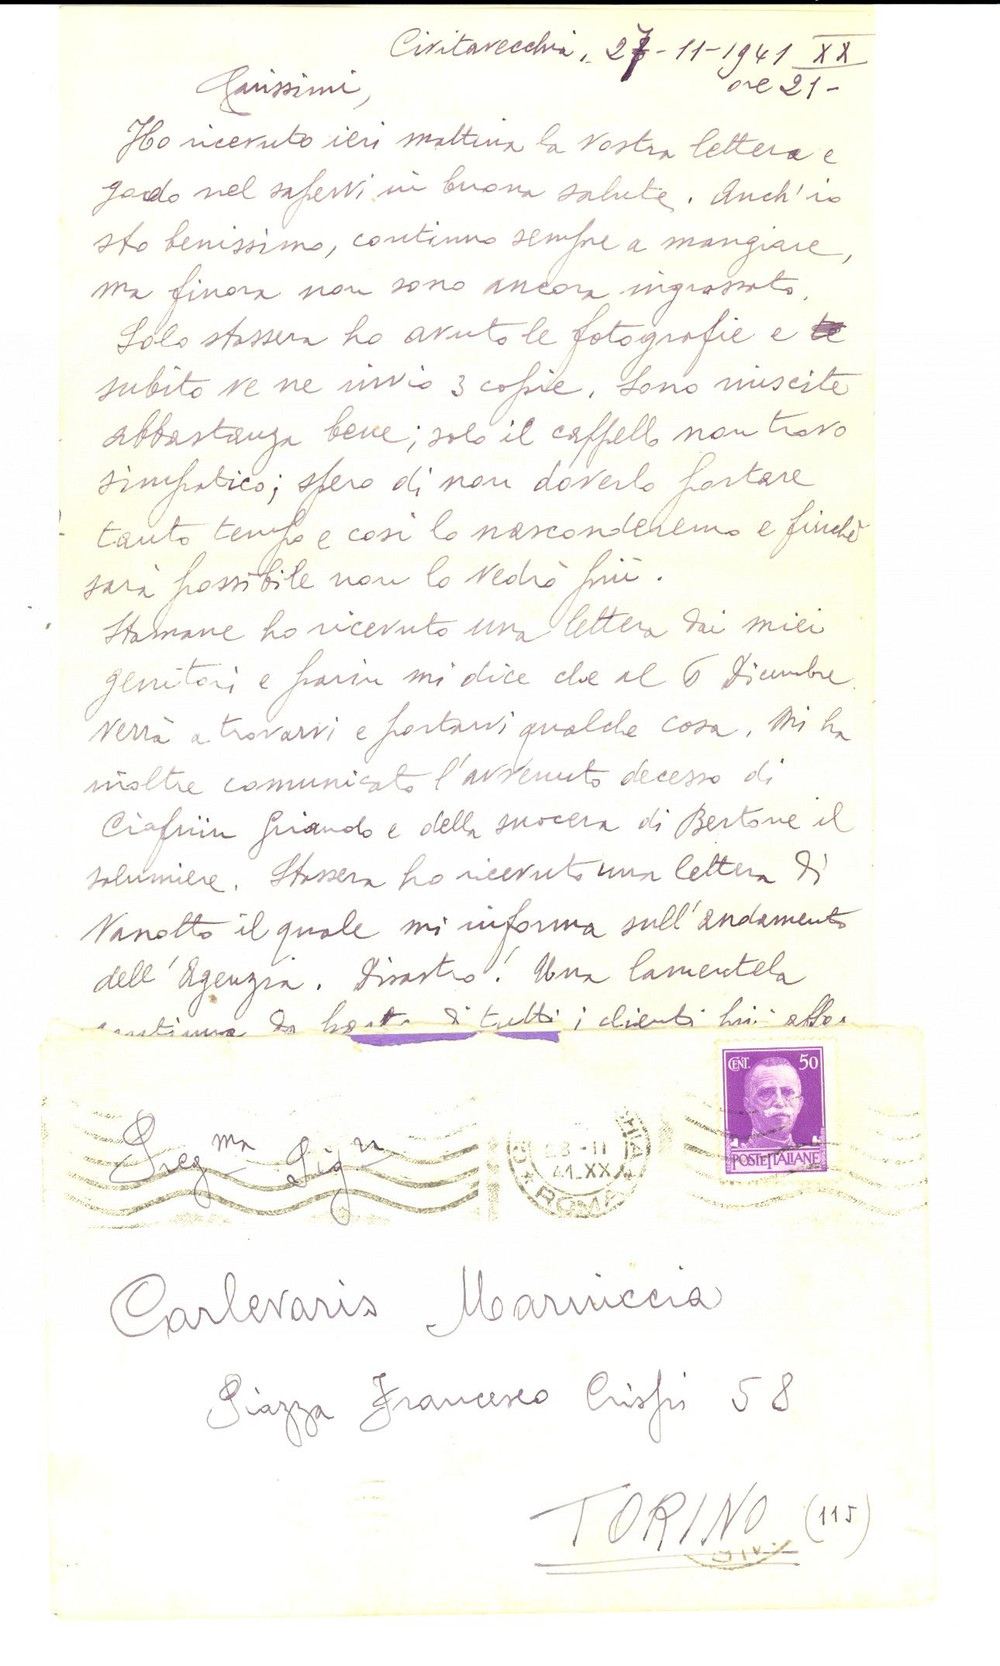 Civitavecchia, 27-11-1941 XX
ore 21-
Carissimi,
Ho ricevuto ieri mattina la vostra lettera e
godo nel sapervi in buona salute. Anch'io
sto benissimo, continuo sempre a mangiare,
ma finora non sono ancora ingrassato.
Solo stassera ho avuto le fotografie e
subito ve ne invio 3 copie. Sono riuscite
abbastanza bene; solo il cappello non trovo
simpatico; spero di non doverlo portare
tanto tempo e così lo nasconderemo e finchè
sarà possibile non lo vedrò più.
Stamane ho ricevuto una lettera dai miei
genitori e parin mi dice che al 6 Dicembre
verrà a trovarvi e portarvi qualche cosa. Mi ha
inoltre comunicato l'avvenuto decesso di
e della suocera di Bertone il
salumiere. Stassera ho ricevuto una lettera di
Vanotto il quale mi informa sull'andamento
dell'Agenzia. Disastro! Una lamentela
continua da parte di tutti i clienti
Preg.ma Sig.ra
Carlevaris Mariuccia
Piazza Francesco Crispi 58
TORINO (115)
CENT. 50
POSTE ITALIANE
28-11
41.XX
ROMA